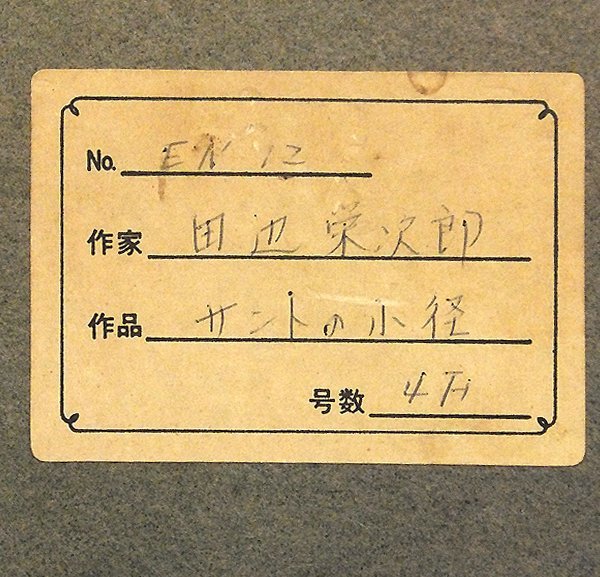 No. EN 12
作家 田辺栄次郎
作品 サントの小径
号数 4F